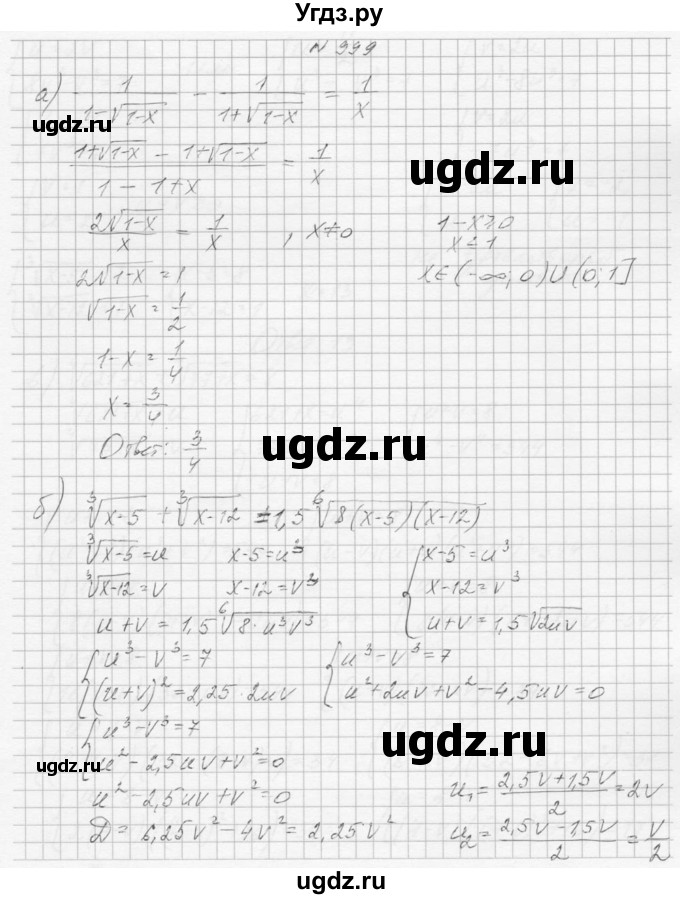 Угдз.ру
N 999
а) 1/(1-√(1-x)) - 1/(1+√(1-x)) = 1/x
ugdz.ru
(1+√(1-x) - 1+√(1-x))/(1-1+x) = 1/x
ugdz.ru
2√(1-x)/x = 1/x , x≠0
1-x≥0
x≤1
2√(1-x) = 1
x∈(-∞;0)∪(0;1]
√(1-x) = 1/2
1-x = 1/4
x = 3/4
Ответ: 3/4
ugdz.ru
б) ∛(x-5) + ∛(x-12) = 1,5 ⁶√(8(x-5)(x-12))
∛(x-5) = u x-5=u³
∛(x-12) = v x-12=v³
u+v = 1,5 ⁶√(8·u³v³)
{ x-5=u³
x-12=v³
u+v=1,5√(2uv)
{ u³-v³=7
(u+v)²=2,25·2uv
{ u³-v³=7
u²+2uv+v²-4,5uv=0
{ u³-v³=7
u²-2,5uv+v²=0
ugdz.ru
ugdz.ru
u²-2,5uv+v²=0
D = 6,25v²-4v²=2,25v²
u₁ = (2,5v+1,5v)/2 = 2v
u₂ = (2,5v-1,5v)/2 = v/2
ugdz.ru